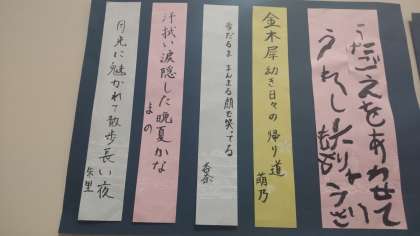 うたごえをあわせて
うれし
金木犀 幼き日々の 帰り道
萌乃
雪だるま まんまる顔で笑ってる
汗拭い涙隠した晩夏かな
よの
月光に魅かれて散歩長い夜
朱里